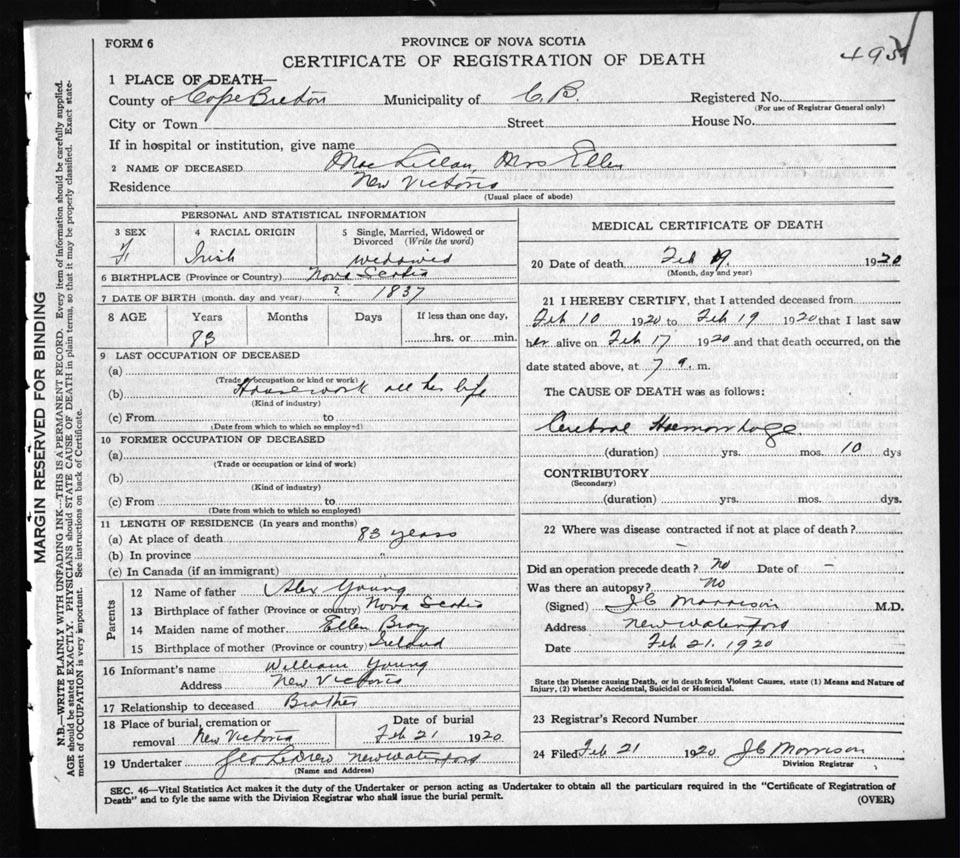 FORM 6
PROVINCE OF NOVA SCOTIA
CERTIFICATE OF REGISTRATION OF DEATH
495
1 PLACE OF DEATH—
County of Cape Breton Municipality of C. B. Registered No.
(For use of Registrar General only)
City or Town Street House No.
If in hospital or institution, give name
2 NAME OF DECEASED MacLellan, Mrs Ellen
Residence New Victoria
(Usual place of abode)
PERSONAL AND STATISTICAL INFORMATION
3 SEX F
4 RACIAL ORIGIN Irish
5 Single, Married, Widowed or Divorced (Write the word) widowed
6 BIRTHPLACE (Province or Country) Nova Scotia
7 DATE OF BIRTH (month, day and year) ? 1837
8 AGE Years Months Days If less than one day,
83 hrs. or min.
9 LAST OCCUPATION OF DECEASED
(a)
(Trade occupation or kind or work)
(b) Housework all her life
(Kind of industry)
(c) From to
(Date from which to which so employed)
10 FORMER OCCUPATION OF DECEASED
(a)
(Trade or occupation or kind of work)
(b)
(Kind of industry)
(c) From to
(Date from which to which so employed)
11 LENGTH OF RESIDENCE (In years and months)
(a) At place of death 83 years
(b) In province "
(c) In Canada (if an immigrant)
Parents
12 Name of father Alex Young
13 Birthplace of father (Province or country) Nova Scotia
14 Maiden name of mother Ellen
15 Birthplace of mother (Province or country) Ireland
16 Informant's name William Young
Address New Victoria
17 Relationship to deceased Brother
18 Place of burial, cremation or removal New Victoria
Date of burial Feb 21 1920
19 Undertaker Geo LeDrew New Waterford
(Name and Address)
MEDICAL CERTIFICATE OF DEATH
20 Date of death Feb 19 1920
(Month, day and year)
21 I HEREBY CERTIFY, that I attended deceased from
Feb 10 1920 to Feb 19 1920 that I last saw
her alive on Feb 17 1920 and that death occurred, on the
date stated above, at 7 a. m.
The CAUSE OF DEATH was as follows:
Cerebral Haemorrhage
(duration) yrs. mos. 10 dys
CONTRIBUTORY
(Secondary)
(duration) yrs. mos. dys.
22 Where was disease contracted if not at place of death?
–
Did an operation precede death? No Date of –
Was there an autopsy? No
(Signed) J C Morrison M.D.
Address New Waterford
Date Feb 21. 1920
State the Disease causing Death, or in death from Violent Causes, state (1) Means and Nature of
Injury, (2) whether Accidental, Suicidal or Homicidal.
23 Registrar's Record Number
24 Filed Feb 21 1920 J C Morrison
Division Registrar
SEC. 46—Vital Statistics Act makes it the duty of the Undertaker or person acting as Undertaker to obtain all the particulars required in the "Certificate of Registration of
Death" and to fyle the same with the Division Registrar who shall issue the burial permit.
(OVER)
MARGIN RESERVED FOR BINDING
N.B.—WRITE PLAINLY WITH UNFADING INK—THIS IS A PERMANENT RECORD. Every item of information should be carefully supplied.
AGE should be stated EXACTLY. PHYSICIANS should STATE CAUSE OF DEATH in plain terms, so that it may be properly classified. Exact state-
ment of OCCUPATION is very important. See instructions on back of Certificate.